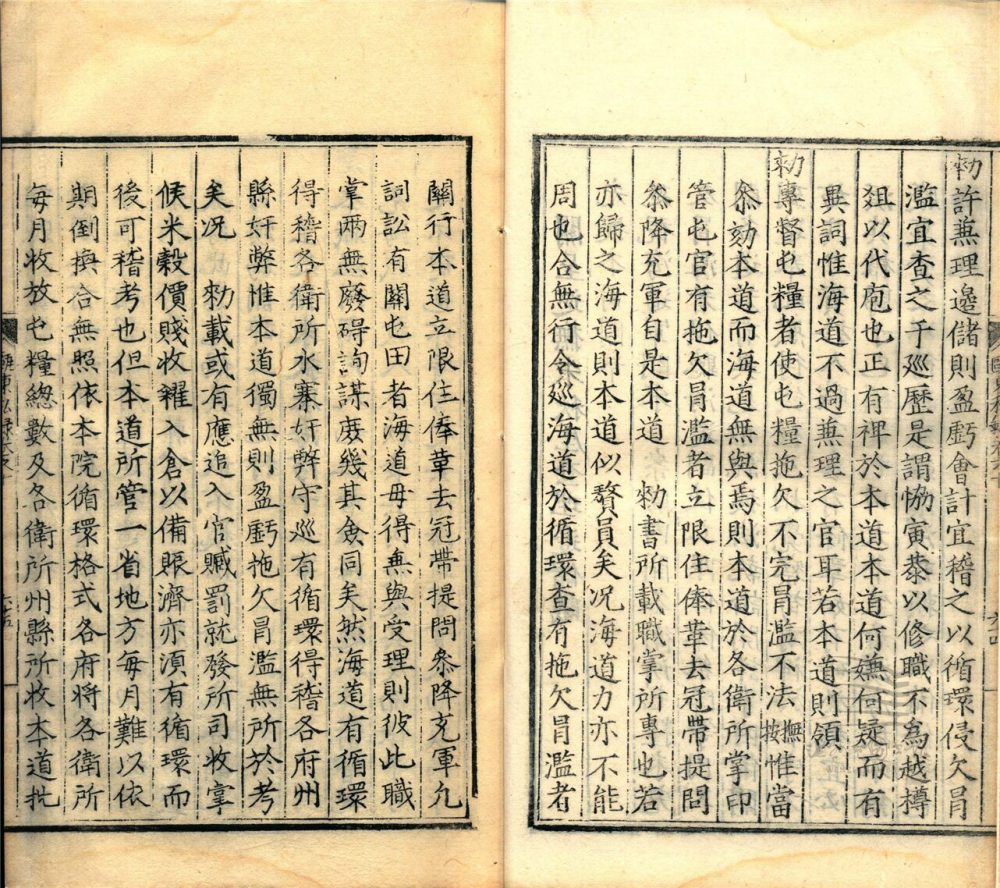 勑許兼理邊儲則盈虧會計宜稽之以循環侵欠冐
濫宜查之于廵歴是謂恊寅恭以修職不為越樽
俎以代庖也正有裨於本道本道何嫌何疑而有
異詞惟海道不過兼理之官耳若本道則領
勑專督屯糧者使屯糧拖欠不完冐濫不法撫按惟當
叅劾本道而海道無與焉則本道於各衛所掌印
管屯官有拖欠冐濫者立限住俸革去冠帶提問
叅降充軍自是本道 勑書所載職掌所專也若
亦歸之海道則本道似贅員矣况海道力亦不能
周也合無行令廵海道於循環查有拖欠冐濫者
關行本道立限住俸革去冠帶提問叅降充軍凢
詞訟有關屯田者海道毋得兼與受理則彼此職
掌兩無廢碍詢謀庻幾其僉同矣然海道有循環
得稽各衛所水寨奸弊守廵有循環得稽各府州
縣奸弊惟本道獨無則盈虧拖欠冐濫無所於考
矣况 勑載或有應追入官贓罰就發所司收掌
候米糓價賤收糴入倉以備賑濟亦湏有循環而
後可稽考也但本道所管一省地方每月難以依
期倒換合無照依本院循環格式各府將各衛所
每月收放屯糧總數及各衛所州縣所收本道批